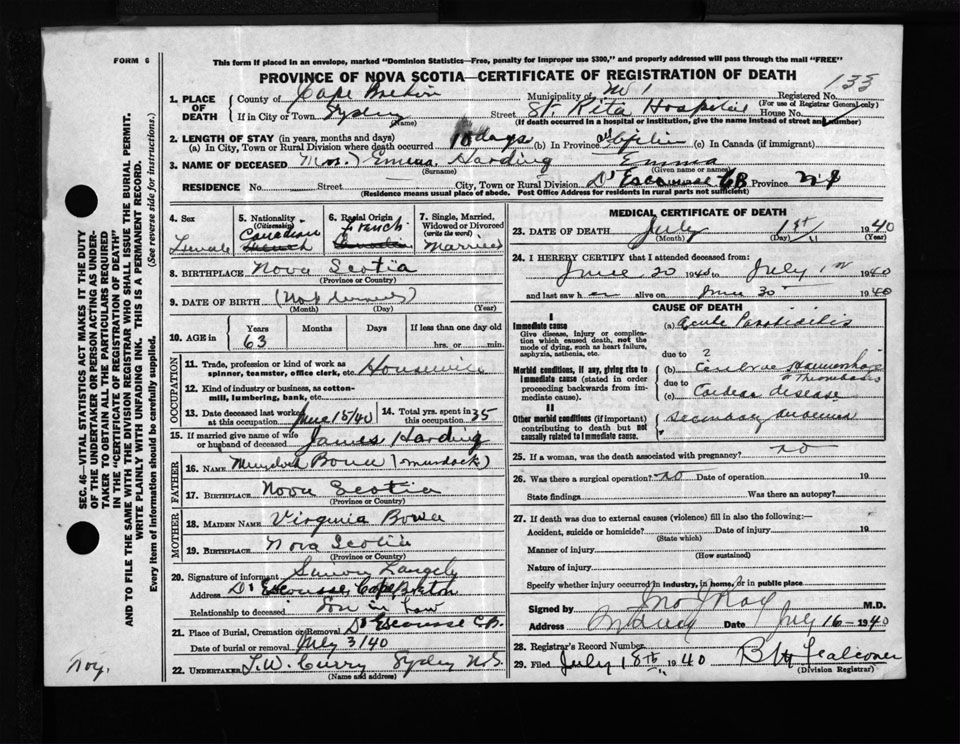 FORM 6
This form if placed in an envelope, marked "Dominion Statistics—Free, penalty for improper use $300," and properly addressed will pass through the mail "FREE"
PROVINCE OF NOVA SCOTIA—CERTIFICATE OF REGISTRATION OF DEATH
133
1. PLACE OF DEATH
County of Cape Breton Municipality of Registered No.
(For use of Registrar General only)
If in City or Town Sydney Street St. Rita Hospital House No.
(Name) (If death occurred in a hospital or institution, give the name instead of street and number)
2. LENGTH OF STAY (in years, months and days)
(a) In City, Town or Rural Division where death occurred 10 days (b) In Province all life (c) In Canada (if immigrant)
3. NAME OF DECEASED Mrs. Emma Harding Emma
(Surname) (Given name or names)
RESIDENCE No. Street City, Town or Rural Division D'Escousse CB Province N S
(Residence means usual place of abode. Post Office Address for residents in rural parts not sufficient)
4. Sex Female
5. Nationality (Citizenship) Canadian French
6. Racial Origin French Canadian
7. Single, Married, Widowed or Divorced (write the word) Married
8. BIRTHPLACE Nova Scotia
(Province or Country)
9. DATE OF BIRTH
(Month) (Day) (Year)
10. AGE in Years 63 Months Days If less than one day old hrs. or min.
OCCUPATION
11. Trade, profession or kind of work as spinner, teamster, office clerk, etc. Housewife
12. Kind of industry or business, as cotton-mill, lumbering, bank, etc.
13. Date deceased last worked at this occupation June 15/40 14. Total yrs. spent in this occupation 35
15. If married give name of wife or husband of deceased James Harding
FATHER
16. NAME (Murdock)
17. BIRTHPLACE Nova Scotia
(Province or Country)
MOTHER
18. MAIDEN NAME Virginia
19. BIRTHPLACE Nova Scotia
(Province or Country)
20. Signature of informant Simon Langely
Address D'Escousse, Cape Breton
Relationship to deceased Son in law
21. Place of Burial, Cremation or Removal D'Escousse C.B.
Date of burial or removal July 3/40
22. UNDERTAKER T.W. Curry Sydney N.S.
(Name and address)
MEDICAL CERTIFICATE OF DEATH
23. DATE OF DEATH July 1st 1940
(Month) (Day) (Year)
24. I HEREBY CERTIFY that I attended deceased from:
June 20 1940 to July 1st 1940
and last saw her alive on June 30 1940
CAUSE OF DEATH
I
Immediate cause
Give disease, injury or complication which caused death, not the mode of dying, such as heart failure, asphyxia, asthenia, etc.
(a) Acute Parotiditis
due to ?
Morbid conditions, if any, giving rise to immediate cause (stated in order proceeding backwards from immediate cause).
(b) Cerebral Haemorrhage
or Thrombosis
due to
(c) Cardiac disease
II
Other morbid conditions (if important) contributing to death but not causally related to immediate cause.
Secondary anaemia
25. If a woman, was the death associated with pregnancy? no
26. Was there a surgical operation? no Date of operation 19
State findings Was there an autopsy?
27. If death was due to external causes (violence) fill in also the following:—
Accident, suicide or homicide? Date of injury 19
(State which)
Manner of injury
(How sustained)
Nature of injury
Specify whether injury occurred in industry, in home, or in public place
Signed by M.D.
Address Sydney Date July 16—1940
28. Registrar's Record Number
29. Filed July 18th 1940
(Division Registrar)
SEC. 46—VITAL STATISTICS ACT MAKES IT THE DUTY OF THE UNDERTAKER OR PERSON ACTING AS UNDERTAKER TO OBTAIN ALL THE PARTICULARS REQUIRED IN THE "CERTIFICATE OF REGISTRATION OF DEATH" AND TO FILE THE SAME WITH THE DIVISION REGISTRAR WHO SHALL ISSUE THE BURIAL PERMIT.
WRITE PLAINLY WITH UNFADING INK. THIS IS A PERMANENT RECORD.
Every item of information should be carefully supplied. (See reverse side for instructions.)